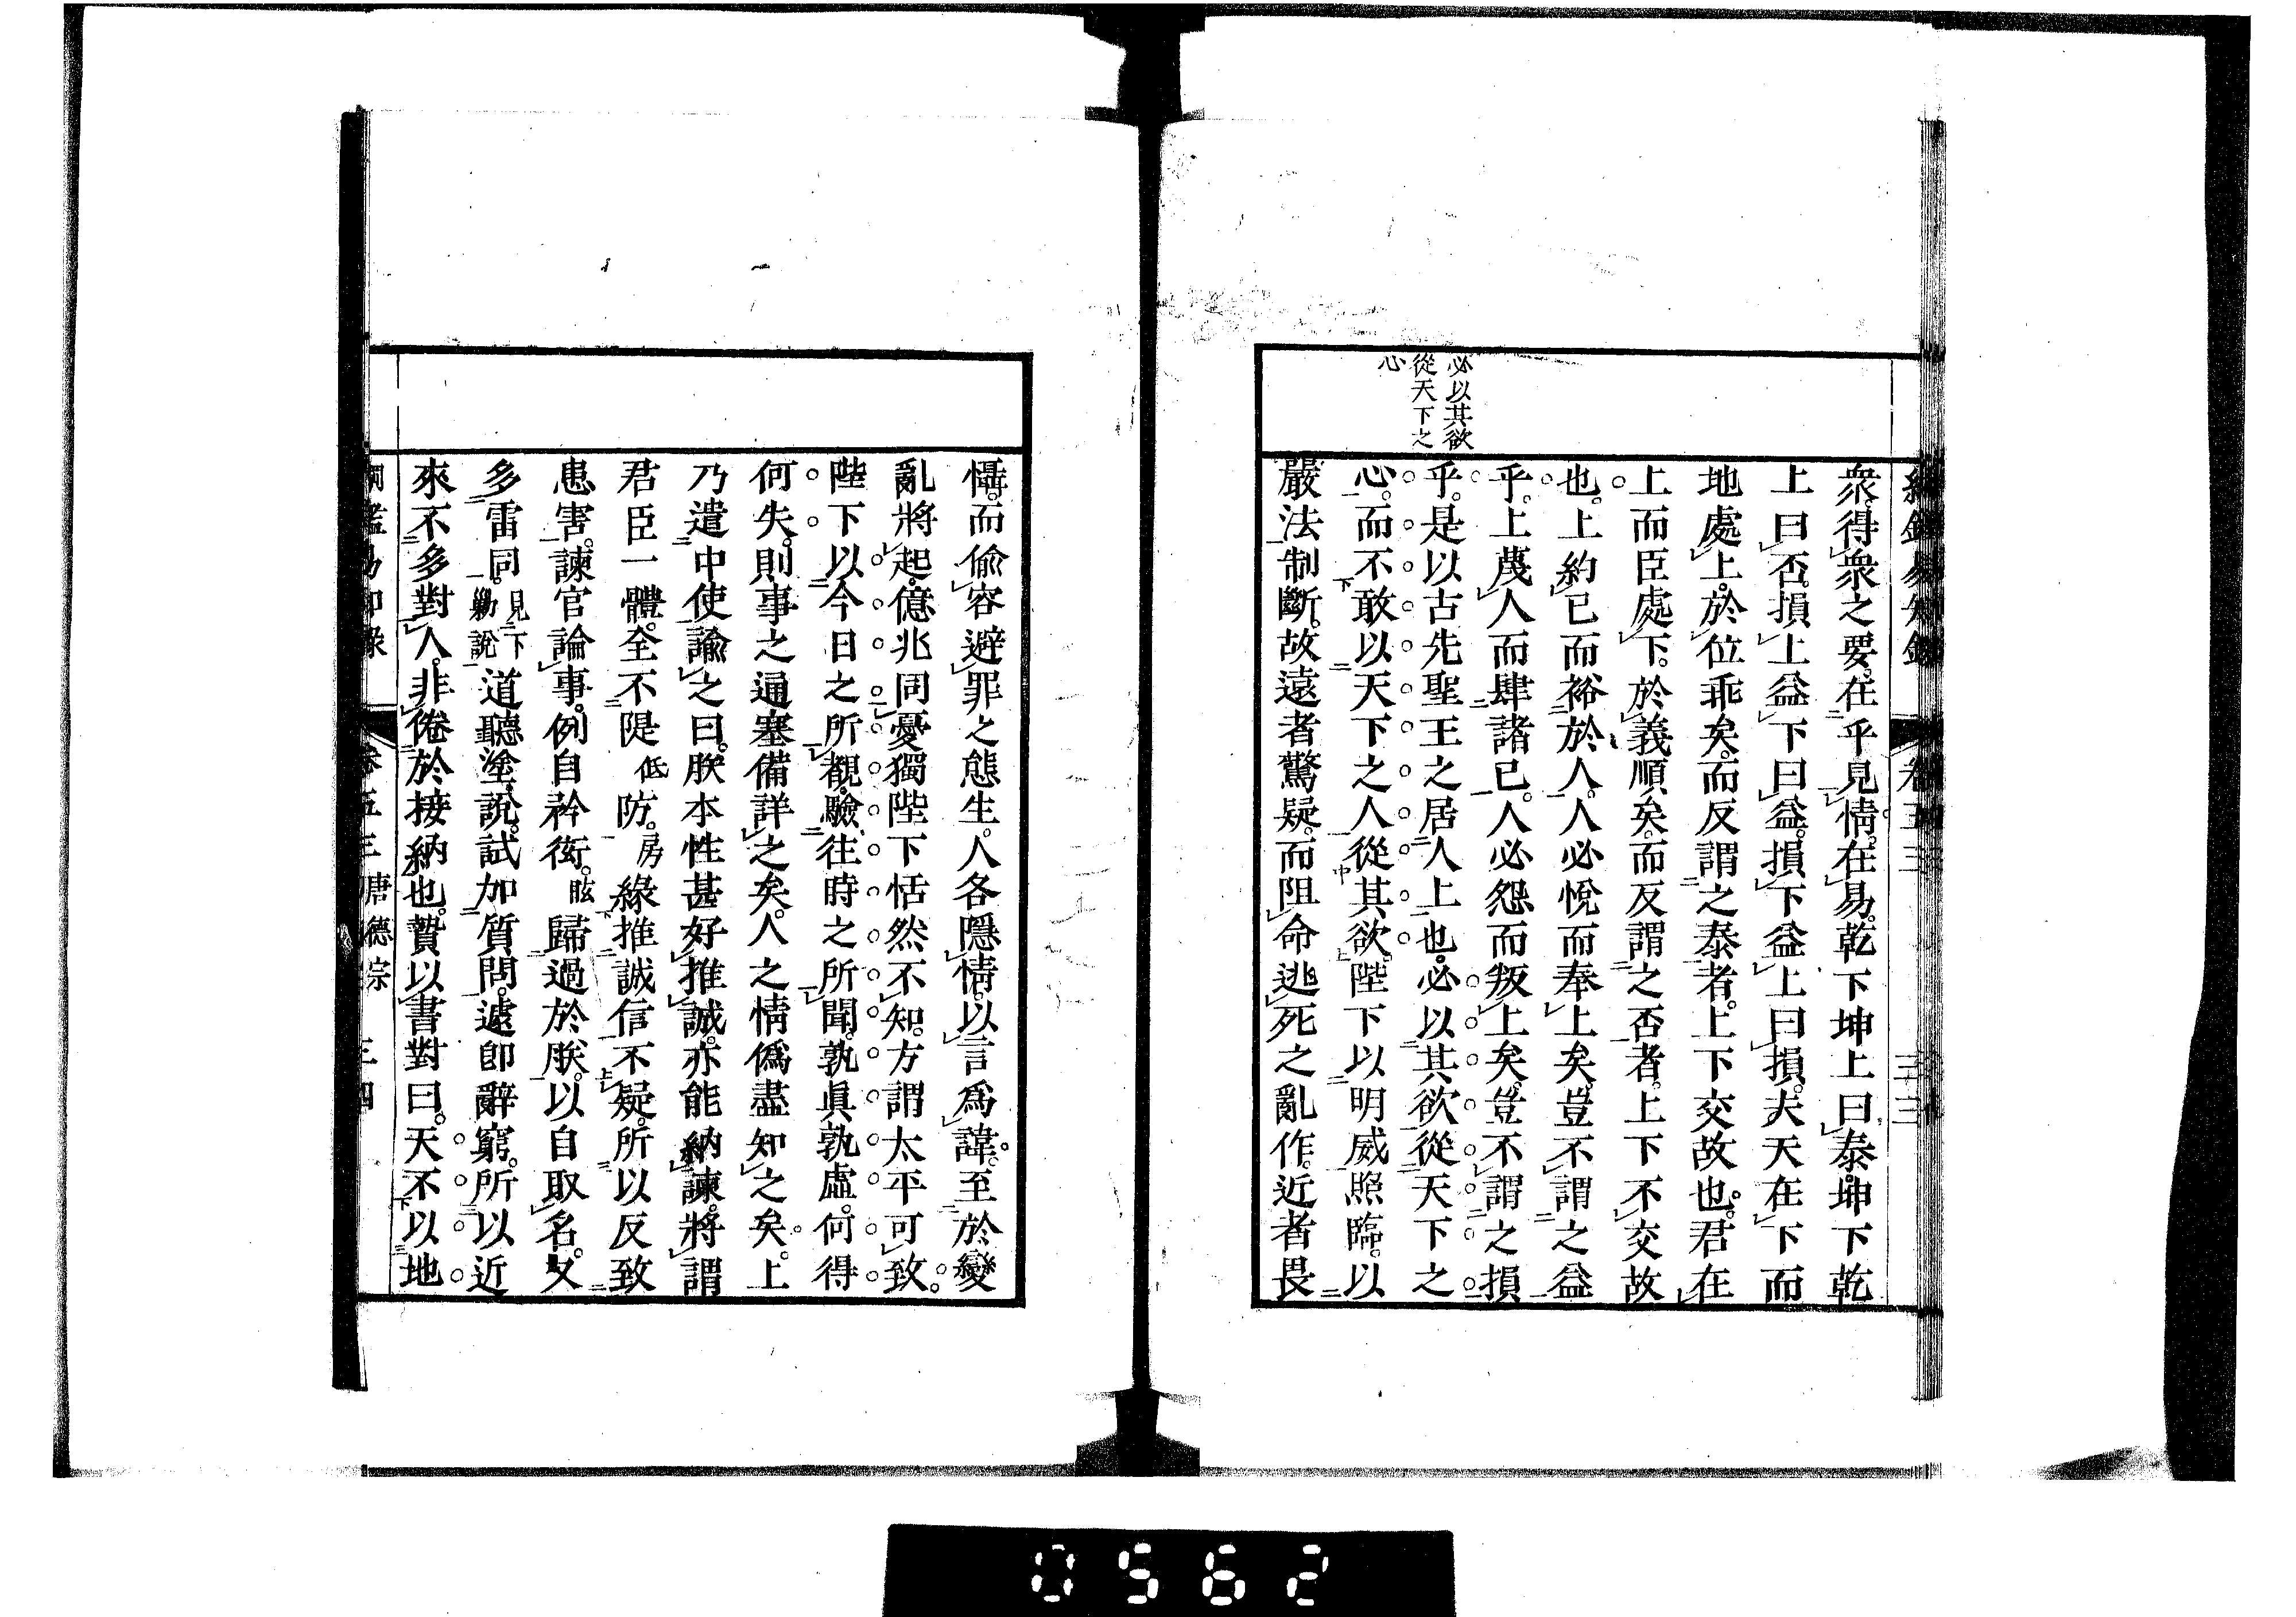 衆。得衆之要。在乎見情。在易。乾下坤上曰泰。坤下乾
上曰否。損上益下曰益。損下益上曰損。夫天在下而
地處上。於位乖矣。而反謂之泰者。上下交故也。君在
上而臣處下。於義順矣。而反謂之否者。上下不交故
也。上約已而裕於人。人必悅而奉上矣。豈不謂之益
乎。上蔑人而肆諸已。人必怨而叛上矣。豈不謂之損
乎。是以古先聖王之居人上也。必以其欲從天下之
心。而不敢以天下之人從其欲。陛下以明威照臨。以
嚴法制斷。故遠者驚疑。而阻命逃死之亂作。近者畏
必以其欲
從天下之
心
懾。而偷容避罪之態生。人各隱情。以言爲諱。至於變
亂將起。億兆同憂。獨陛下恬然不知。方謂太平可致。
陛下以今日之所覩。驗往時之所聞。孰眞孰虛。何得
何失。則事之通塞備詳之矣。人之情僞盡知之矣。上
乃遣中使諭之曰。朕本性甚好推誠。亦能納諫。將謂
君臣一體。全不隄低防。房緣推誠信不疑。所以反致
患害。諫官論事。例自矜衒。眩歸過於朕。以自取名。又
多雷同。見下勦說道聽塗說。試加質問。遽卽辭窮。所以近
來不多對人。非倦於接納也。贄以書對曰。天不以地
卷五三 唐德宗 三四